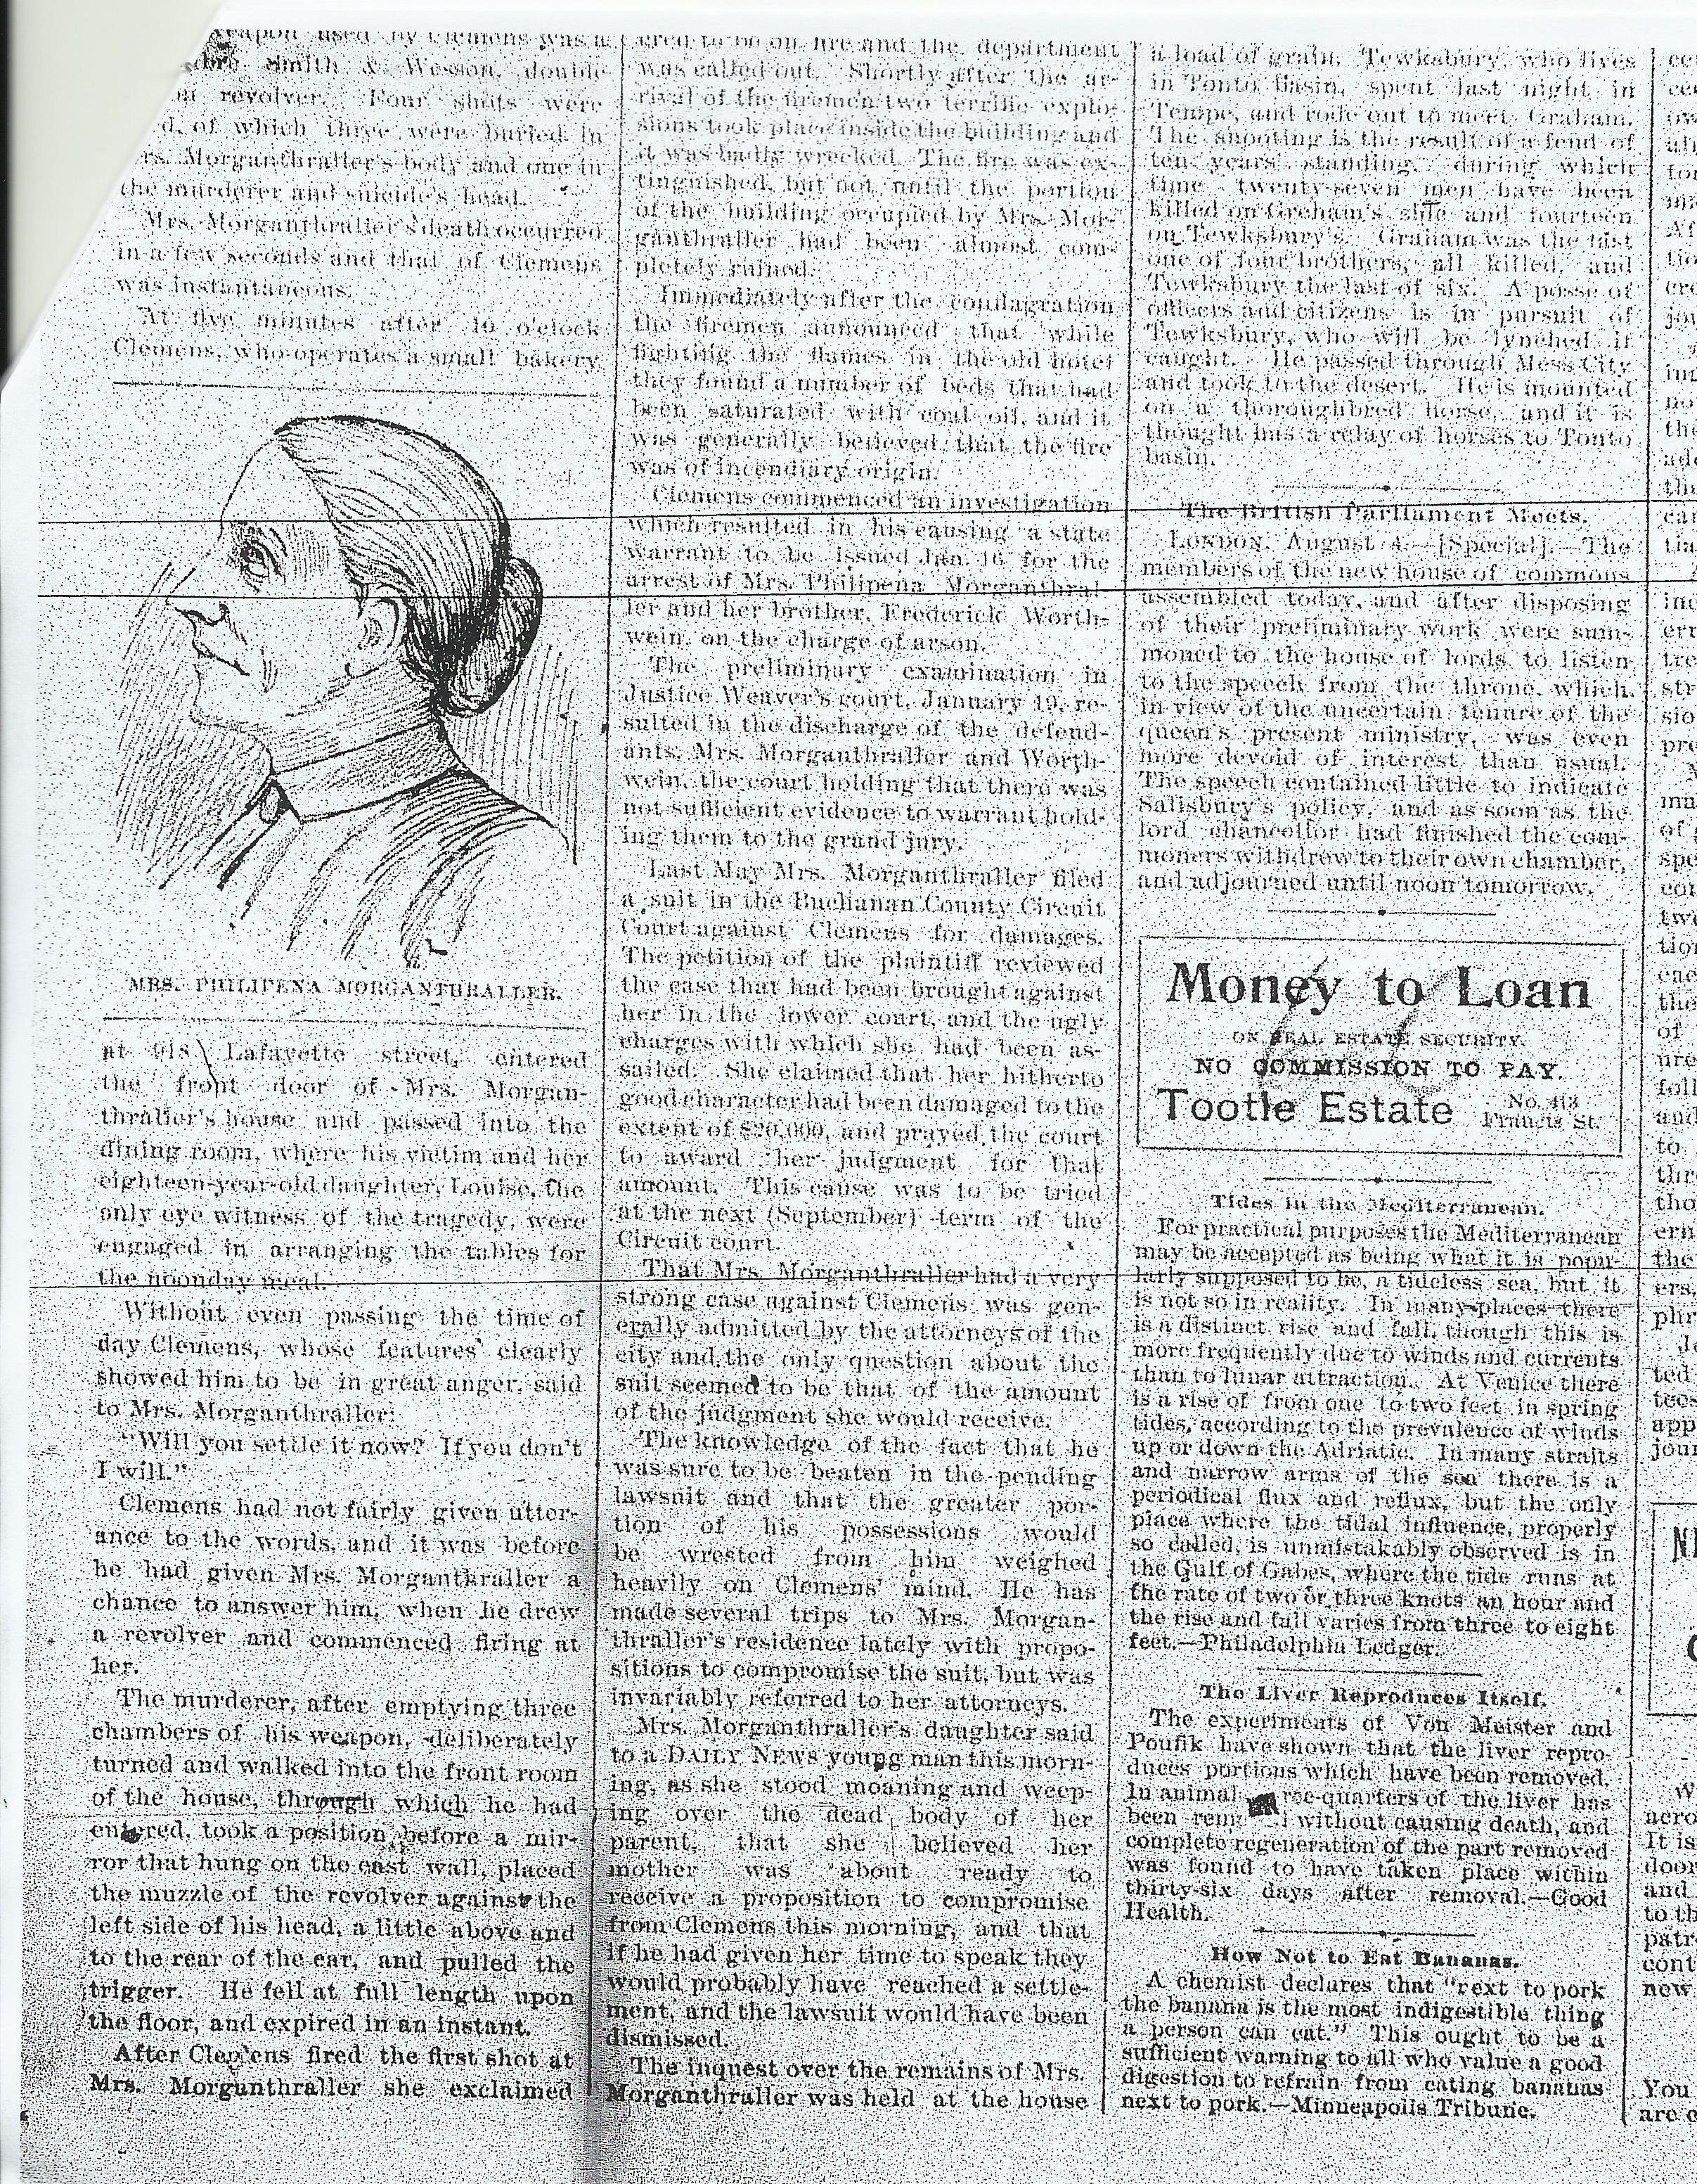 weapon used by Clemens was a
Smith & Wesson, double
revolver. Four shots were
of which three were buried in
Morganthraller's body and one in
the murderer and suicide's head.
Mrs. Morganthraller's death occurred
in a few seconds and that of Clemens
was instantaneous.
At five minutes after 10 o'clock
Clemens, who operates a small bakery
MRS. PHILIPENA MORGANTHRALLER.
at 918 Lafayette street, entered
the front door of Mrs. Morgan-
thraller's house and passed into the
dining room, where his victim and her
eighteen-year-old daughter, Louise, the
only eye witness of the tragedy, were
engaged in arranging the tables for
the noonday meal.
Without even passing the time of
day Clemens, whose features clearly
showed him to be in great anger, said
to Mrs. Morganthraller:
"Will you settle it now? If you don't
I will."
Clemens had not fairly given utter-
ance to the words, and it was before
he had given Mrs. Morganthraller a
chance to answer him, when he drew
a revolver and commenced firing at
her.
The murderer, after emptying three
chambers of his weapon, deliberately
turned and walked into the front room
of the house, through which he had
entered, took a position before a mir-
ror that hung on the east wall, placed
the muzzle of the revolver against the
left side of his head, a little above and
to the rear of the ear, and pulled the
trigger. He fell at full length upon
the floor, and expired in an instant.
After Clemens fired the first shot at
Mrs. Morganthraller she exclaimed
ered to be on fire and the department
was called out. Shortly after the ar-
rival of the firemen two terrific explo-
sions took place inside the building and
it was badly wrecked. The fire was ex-
tinguished, but not until the portion
of the building occupied by Mrs. Mor-
ganthraller had been almost com-
pletely ruined.
Immediately after the conflagration
the firemen announced that while
fighting the flames in the old hotel
they found a number of beds that had
been saturated with coal oil, and it
was generally believed that the fire
was of incendiary origin.
Clemens commenced an investigation
which resulted in his causing a state
warrant to be issued Jan. 16 for the
arrest of Mrs. Philipena Morganthral-
ler and her brother, Frederick Worth-
wein, on the charge of arson.
The preliminary examination in
Justice Weaver's court, January 19, re-
sulted in the discharge of the defend-
ants, Mrs. Morganthraller and Worth-
wein, the court holding that there was
not sufficient evidence to warrant hold-
ing them to the grand jury.
Last May Mrs. Morganthraller filed
a suit in the Buchanan County Circuit
Court against Clemens for damages.
The petition of the plaintiff reviewed
the case that had been brought against
her in the lower court, and the ugly
charges with which she had been as-
sailed. She claimed that her hitherto
good character had been damaged to the
extent of $20,000, and prayed the court
to award her judgment for that
amount. This cause was to be tried
at the next (September) term of the
Circuit court.
That Mrs. Morganthraller had a very
strong case against Clemens was gen-
erally admitted by the attorneys of the
city and the only question about the
suit seemed to be that of the amount
of the judgment she would receive.
The knowledge of the fact that he
was sure to be beaten in the pending
lawsuit and that the greater por-
tion of his possessions would
be wrested from him weighed
heavily on Clemens' mind. He has
made several trips to Mrs. Morgan-
thraller's residence lately with propo-
sitions to compromise the suit, but was
invariably referred to her attorneys.
Mrs. Morganthraller's daughter said
to a DAILY NEWS young man this morn-
ing, as she stood moaning and weep-
ing over the dead body of her
parent, that she believed her
mother was about ready to
receive a proposition to compromise
from Clemens this morning, and that
if he had given her time to speak they
would probably have reached a settle-
ment, and the lawsuit would have been
dismissed.
The inquest over the remains of Mrs.
Morganthraller was held at the house
a load of grain. Tewksbury, who lives
in Tonto Basin, spent last night in
Tempe, and rode out to meet Graham.
The shooting is the result of a feud of
ten years' standing, during which
time twenty-seven men have been
killed on Greham's side and fourteen
on Tewksbury's. Graham was the last
one of four brothers, all killed, and
Tewksbury the last of six. A posse of
officers and citizens is in pursuit of
Tewksbury, who will be lynched if
caught. He passed through Mess City
and took to the desert. He is mounted
on a thoroughbred horse, and it is
thought has a relay of horses to Tonto
basin.
The British Parliament Meets.
LONDON, August 4.—[Special].—The
members of the new house of commons
assembled today, and after disposing
of their preliminary work were sum-
moned to the house of lords to listen
to the speech from the throne, which,
in view of the uncertain tenure of the
queen's present ministry, was even
more devoid of interest than usual.
The speech contained little to indicate
Salisbury's policy, and as soon as the
lord chancellor had finished the com-
moners withdrew to their own chamber,
and adjourned until noon tomorrow.
Money to Loan
ON REAL ESTATE SECURITY.
NO COMMISSION TO PAY.
Tootle Estate No. 413 Francis St.
Tides in the Mediterranean.
For practical purposes the Mediterranean
may be accepted as being what it is popu-
larly supposed to be, a tideless sea, but it
is not so in reality. In many places there
is a distinct rise and fall, though this is
more frequently due to winds and currents
than to lunar attraction. At Venice there
is a rise of from one to two feet in spring
tides, according to the prevalence of winds
up or down the Adriatic. In many straits
and narrow arms of the sea there is a
periodical flux and reflux, but the only
place where the tidal influence, properly
so called, is unmistakably observed is in
the Gulf of Gabes, where the tide runs at
the rate of two or three knots an hour and
the rise and fall varies from three to eight
feet.—Philadelphia Ledger.
The Liver Reproduces Itself.
The experiments of Von Meister and
Poufik have shown that the liver repro-
duces portions which have been removed.
In animal ree-quarters of the liver has
been rem without causing death, and
complete regeneration of the part removed
was found to have taken place within
thirty-six days after removal.—Good
Health.
How Not to Eat Bananas.
A chemist declares that "next to pork
the banana is the most indigestible thing
a person can eat." This ought to be a
sufficient warning to all who value a good
digestion to refrain from eating bananas
next to pork.—Minneapolis Tribune.